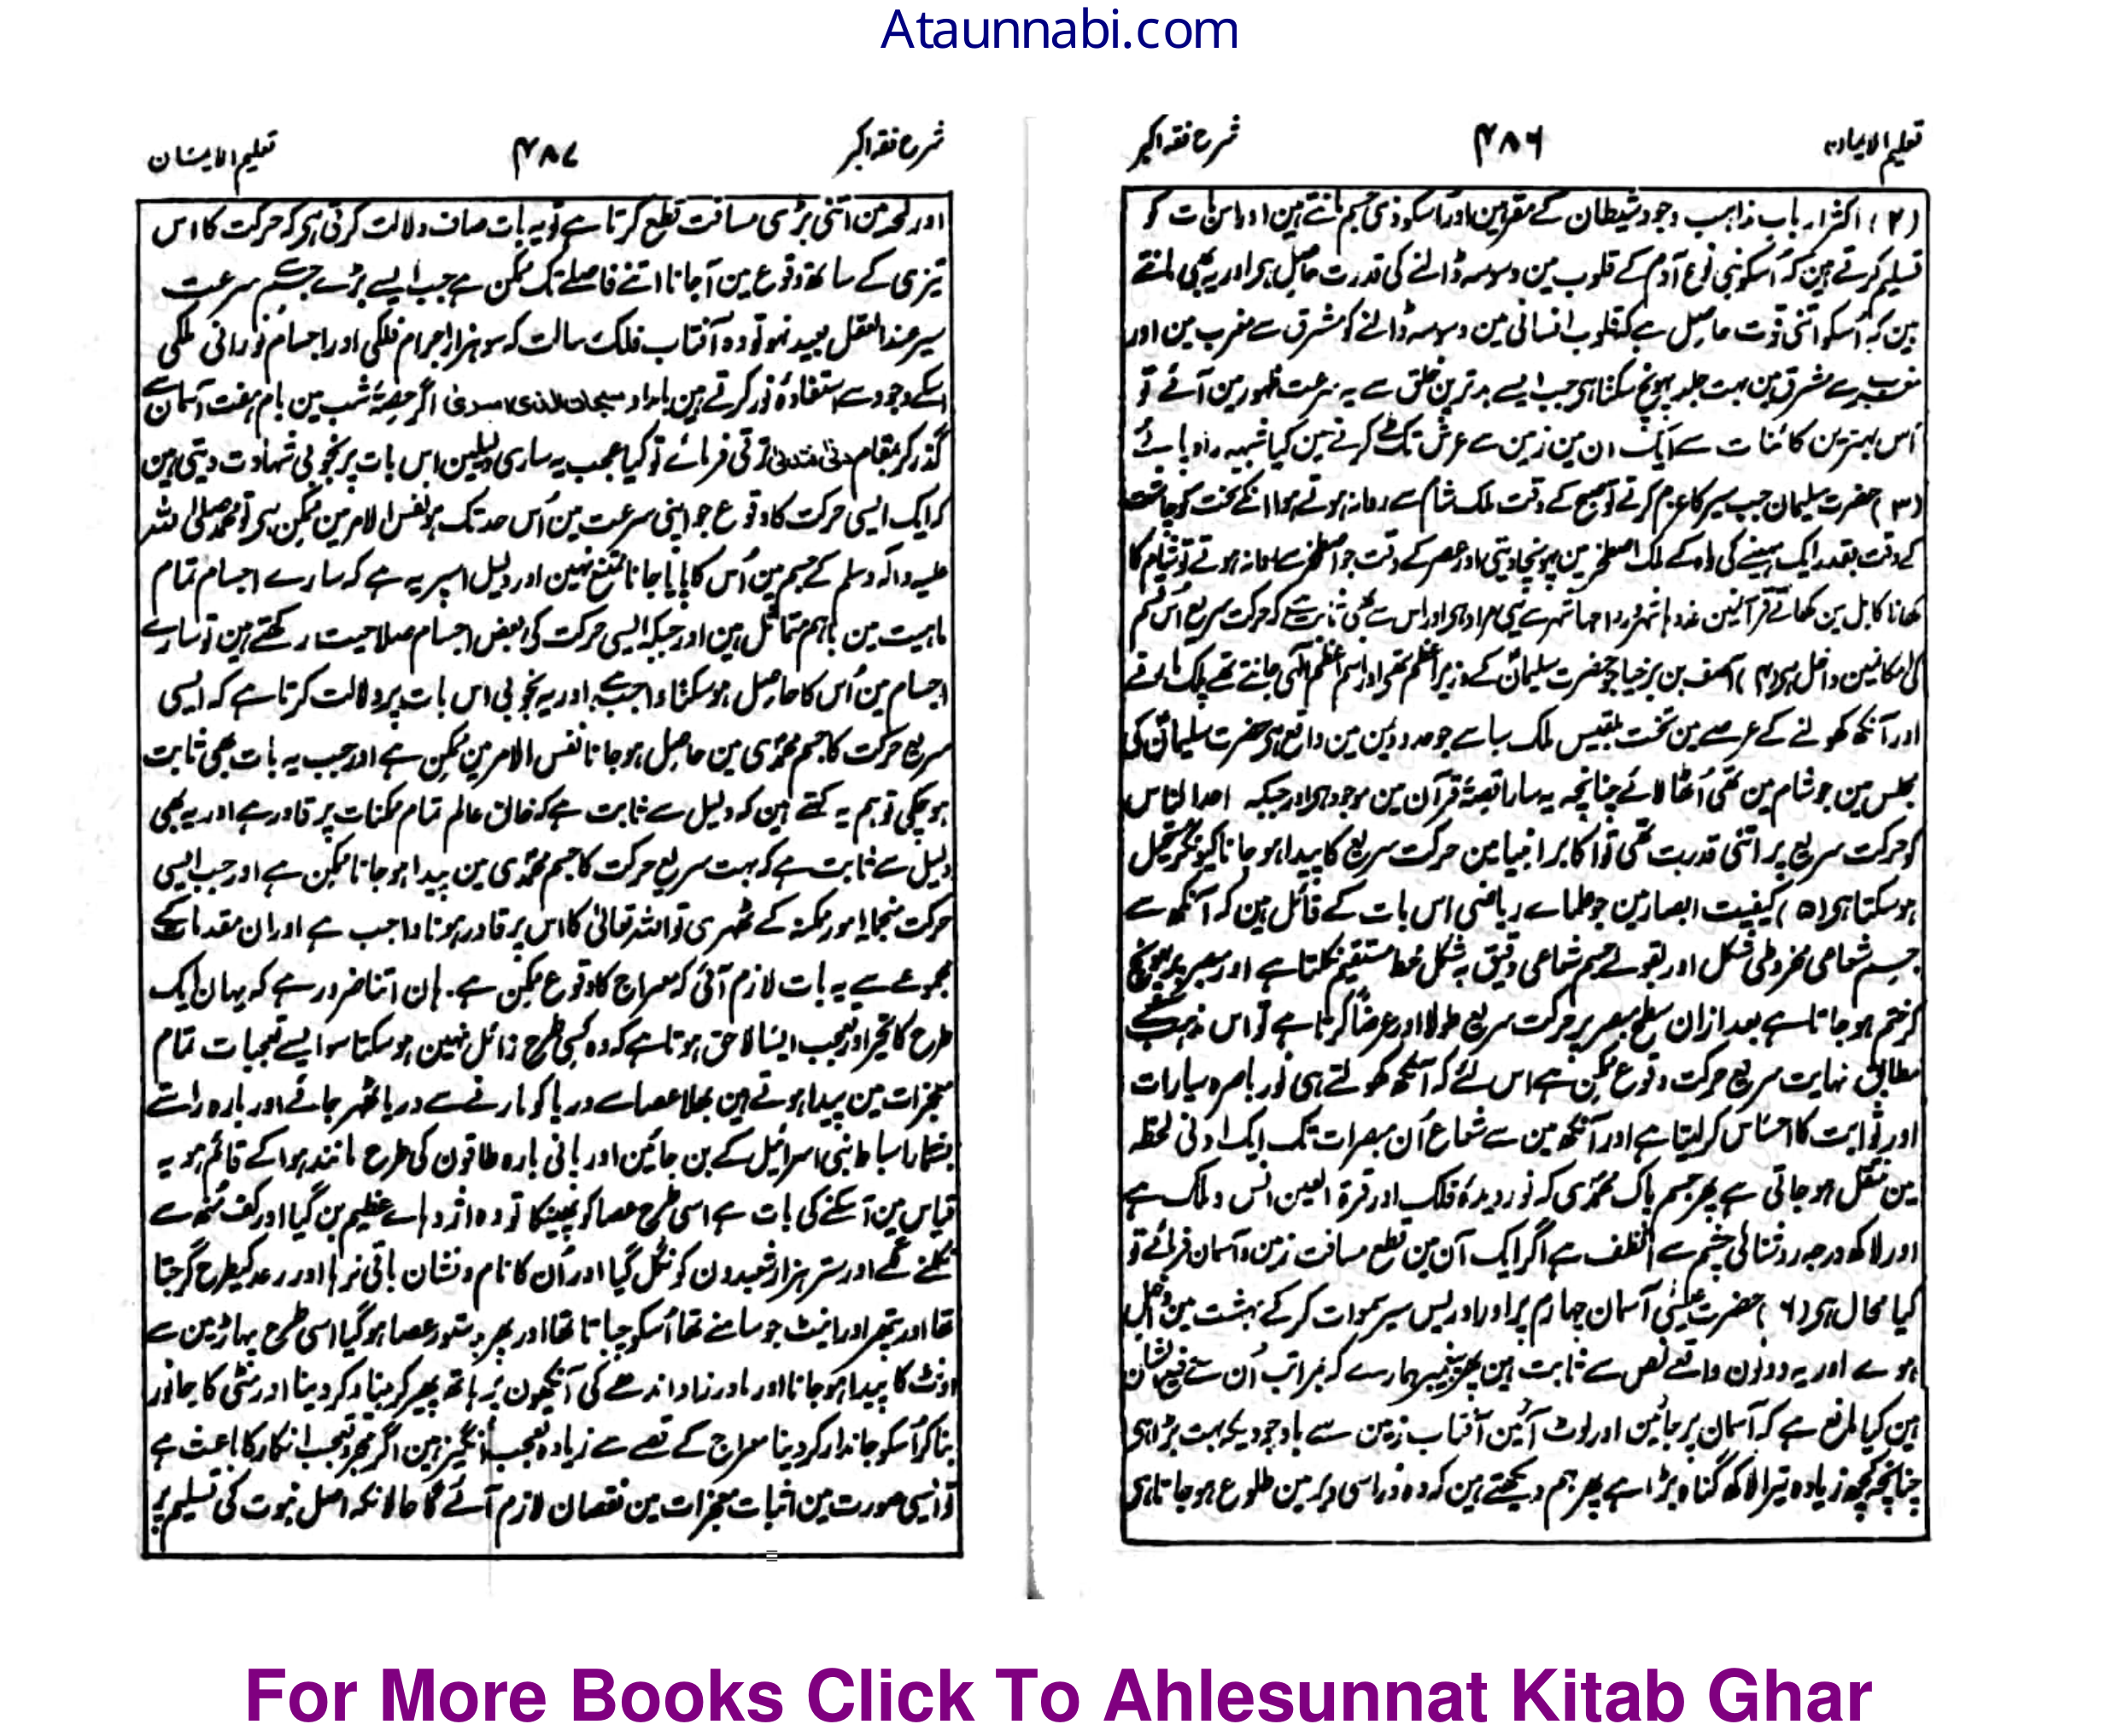 Ataunnabi.com
تعلیم الایمان
۴۸۶
شرح فقہ اکبر
(۲) اکثر ارباب مذاہب وجود شیطان کے مقر ہین اور اسکو ذی جسم مانتے ہین اور اس بات کو
تسلیم کرتے ہین کہ اُسکو بنی نوع آدم کے قلوب مین وسوسہ ڈالنے کی قدرت حاصل ہی اور یہ بھی مانتے
ہین کہ اُسکو اتنی قوت حاصل ہے کہ قلوب انسانی مین وسوسہ ڈالنے کو مشرق سے مغرب مین اور
مغرب سے مشرق مین بہت جلد پہونچ سکتا ہی جب ایسے بدترین خلق سے یہ سرعت ظہور مین آئے تو
اُس بہترین کائنات سے ایک ان مین زمین سے عرش تک طے کرنے مین کیا شبہہ راہ پائے
(۳) حضرت سلیمان جب سیر کا عزم کرتے تو صبح کے وقت ملک شام سے روانہ ہوتے ہوا انکے تخت کو چاشت
کے وقت بقدر ایک مہینے کی راہ کے ملک اصطخر مین پہونچا دیتی اور عصر کے وقت جو اصطخر سے روانہ ہوتے تو شام کا
کھانا کابل مین کھاتے قرآنمین غدوہا شہر ورواحہا شہر سے یہی مراد ہی اور اس سے بھی ثابت ہے کہ حرکت سریع اُس قسم
کی امکانمین داخل ہی (۴) آصف بن برخیا جو حضرت سلیمان کے وزیر اعظم تھی اور اسم اعظم الٰہی جانتے تھے پلک مارنے
اور آنکھ کھولنے کے عرصے مین تخت بلقیس ملک سبا سے جو حدود یمن مین واقع ہی حضرت سلیمان کی
مجلس مین جو شام مین تھی اُٹھا لائے چنانچہ یہ سارا قصۂ قرآن مین موجود ہی اور جبکہ احد الناس
کو حرکت سریع پر اتنی قدرت تھی تو اکابر انبیا مین حرکت سریع کا پیدا ہو جانا کیونکر مستحیل
ہو سکتا ہی (۵) کیفیت ابصار مین جو علماے ریاضی اس بات کے قائل ہین کہ آنکھ سے
جسم شعاعی مخروطی شکل اور بقولے جسم شعاعی دقیق بہ شکل خط مستقیم نکلتا ہے اور مبصر پر پہونچ
کر ختم ہو جاتا ہے بعد ازان سطح مبصر پر حرکت سریع طولا اور عرضاً کرتا ہے تو اس مذہب کے
مطابق نہایت سریع حرکت وقوع ممکن ہے اس لئے کہ آنکھ کھولتے ہی نور باصرہ سیارات
اور ثوابت کا احساس کر لیتا ہے اور آنکھ مین سے شعاع اُن مبصرات تک ایک ادنی لحظہ
مین منتقل ہو جاتی ہے پھر جسم پاک محمدی کہ نور دیدۂ فلک اور قرۃ العین انس و ملک ہے
اور لاکھ درجہ روشنائی چشم سے الطف ہے اگر ایک آن مین قطع مسافت زمین و آسمان فرمائے تو
کیا محال ہی (۶) حضرت عیسیٰ آسمان چہارم پر اور ادریس سیر سموات کر کے بہشت مین داخل
ہوے اور یہ دونون واقعے نص سے ثابت ہین پھر پیغمبر ہمارے کہ بمراتب اُن سے رفیع الشان
ہین کیا مانع ہے کہ آسمان پر جائین اور لوٹ آئین آفتاب زمین سے باوجودیکہ بہت بڑا ہی
چنانچہ کچھ زیادہ تیرا لاکھ گنا وہ بڑا ہے پھر ہم دیکھتے ہین کہ وہ ذرا سی دیر مین طلوع ہو جاتا ہی
شرح فقہ اکبر
۴۸۷
تعلیم الایمان
اور لمحہ مین اتنی بڑی مسافت قطع کرتا ہے تو یہ بات صاف دلالت کرتی ہی کہ حرکت کا اس
تیزی کے ساتھ وقوع مین آجانا اتنے فاصلے تک ممکن ہے جب ایسے بڑے جسم سے سرعت
سیر عند العقل بعید نہو تو وہ آفتاب فلک رسالت کہ سو ہزار اجرام فلکی اور اجسام نورانی ملکی
اسکے وجود سے استفادۂ نور کرتے ہین بامداد سبحان الذی اسریٰ اگر حصۂ شب مین بام ہفت آسمان سے
گذر کر بمقام دنیٰ فتدلیٰ ترقی فرمائے تو کیا عجب یہ ساری دلیلین اس بات پر بخوبی شہادت دیتی ہین
کہ ایک ایسی حرکت کا وقوع جو اپنی سرعت مین اُس حد تک ہو نفس الامر مین ممکن ہی تو محمد صلی اللہ
علیہ وآلہ وسلم کے جسم مین اُس کا پایا جانا ممتنع نہین اور دلیل اسپر یہ ہے کہ سارے اجسام تمام
ماہیت مین باہم متماثل ہین اور جبکہ ایسی حرکت کی بعض اجسام صلاحیت رکھتے ہین تو سارے
اجسام مین اُس کا حاصل ہو سکنا واجب ہے اور یہ بخوبی اس بات پر دلالت کرتا ہے کہ ایسی
سریع حرکت کا جسم محمدی مین حاصل ہو جانا نفس الامر مین ممکن ہے اور جب یہ بات بھی ثابت
ہو چکی تو ہم یہ کہتے ہین کہ دلیل سے ثابت ہے کہ خالق عالم تمام ممکنات پر قادر ہے اور یہ بھی
دلیل سے ثابت ہے کہ بہت سریع حرکت کا جسم محمدی مین پیدا ہو جانا ممکن ہے اور جب ایسی
حرکت منجملہ امور ممکنہ کے ٹھہری تو اللہ تعالیٰ کا اس پر قادر ہونا واجب ہے اور ان مقدمات کے
مجموعے سے یہ بات لازم آئی کہ معراج کا وقوع ممکن ہے۔ ہان اتنا ضرور ہے کہ یہان ایک
طرح کا تحیر اور تعجب ایسا لاحق ہوتا ہے کہ وہ کسی طرح زائل نہین ہو سکتا سو ایسے تعجبات تمام
معجزات مین پیدا ہوتے ہین بھلا عصا سے دریا کو مارنے سے دریا ٹھہر جائے اور بارہ راستے
بشمار اسباط بنی اسرائیل کے بن جائین اور پانی بارہ طاقون کی طرح مانند ہوا کے قائم ہو یہ
قیاس مین آسکنے کی بات ہے اسی طرح عصا کو پھینکا تو وہ اژدہاے عظیم بن گیا اور کف مُنھ سے
نکلنے لگے اور ستر ہزار شعبدون کو نگل گیا اور اُن کا نام و نشان باقی نرہا اور رعد کیطرح گرجتا
تھا اور پتھر اور اینٹ جو سامنے تھا اُسکو چباتا تھا اور پھر بدستور عصا ہو گیا اسی طرح پہاڑ مین سے
اونٹ کا پیدا ہو جانا اور مادر زاد اندھے کی آنکھون پر ہاتھ پھیر کر بینا کر دینا اور مٹی کا جانور
بنا کر اُسکو جاندار کر دینا معراج کے قصے سے زیادہ تعجب انگیز ہین اگر مجرد تعجب انکار کا باعث ہے
تو ایسی صورت مین اثبات معجزات مین نقصان لازم آئے گا حالانکہ اصل نبوت کی تسلیم پر
For More Books Click To Ahlesunnat Kitab Ghar